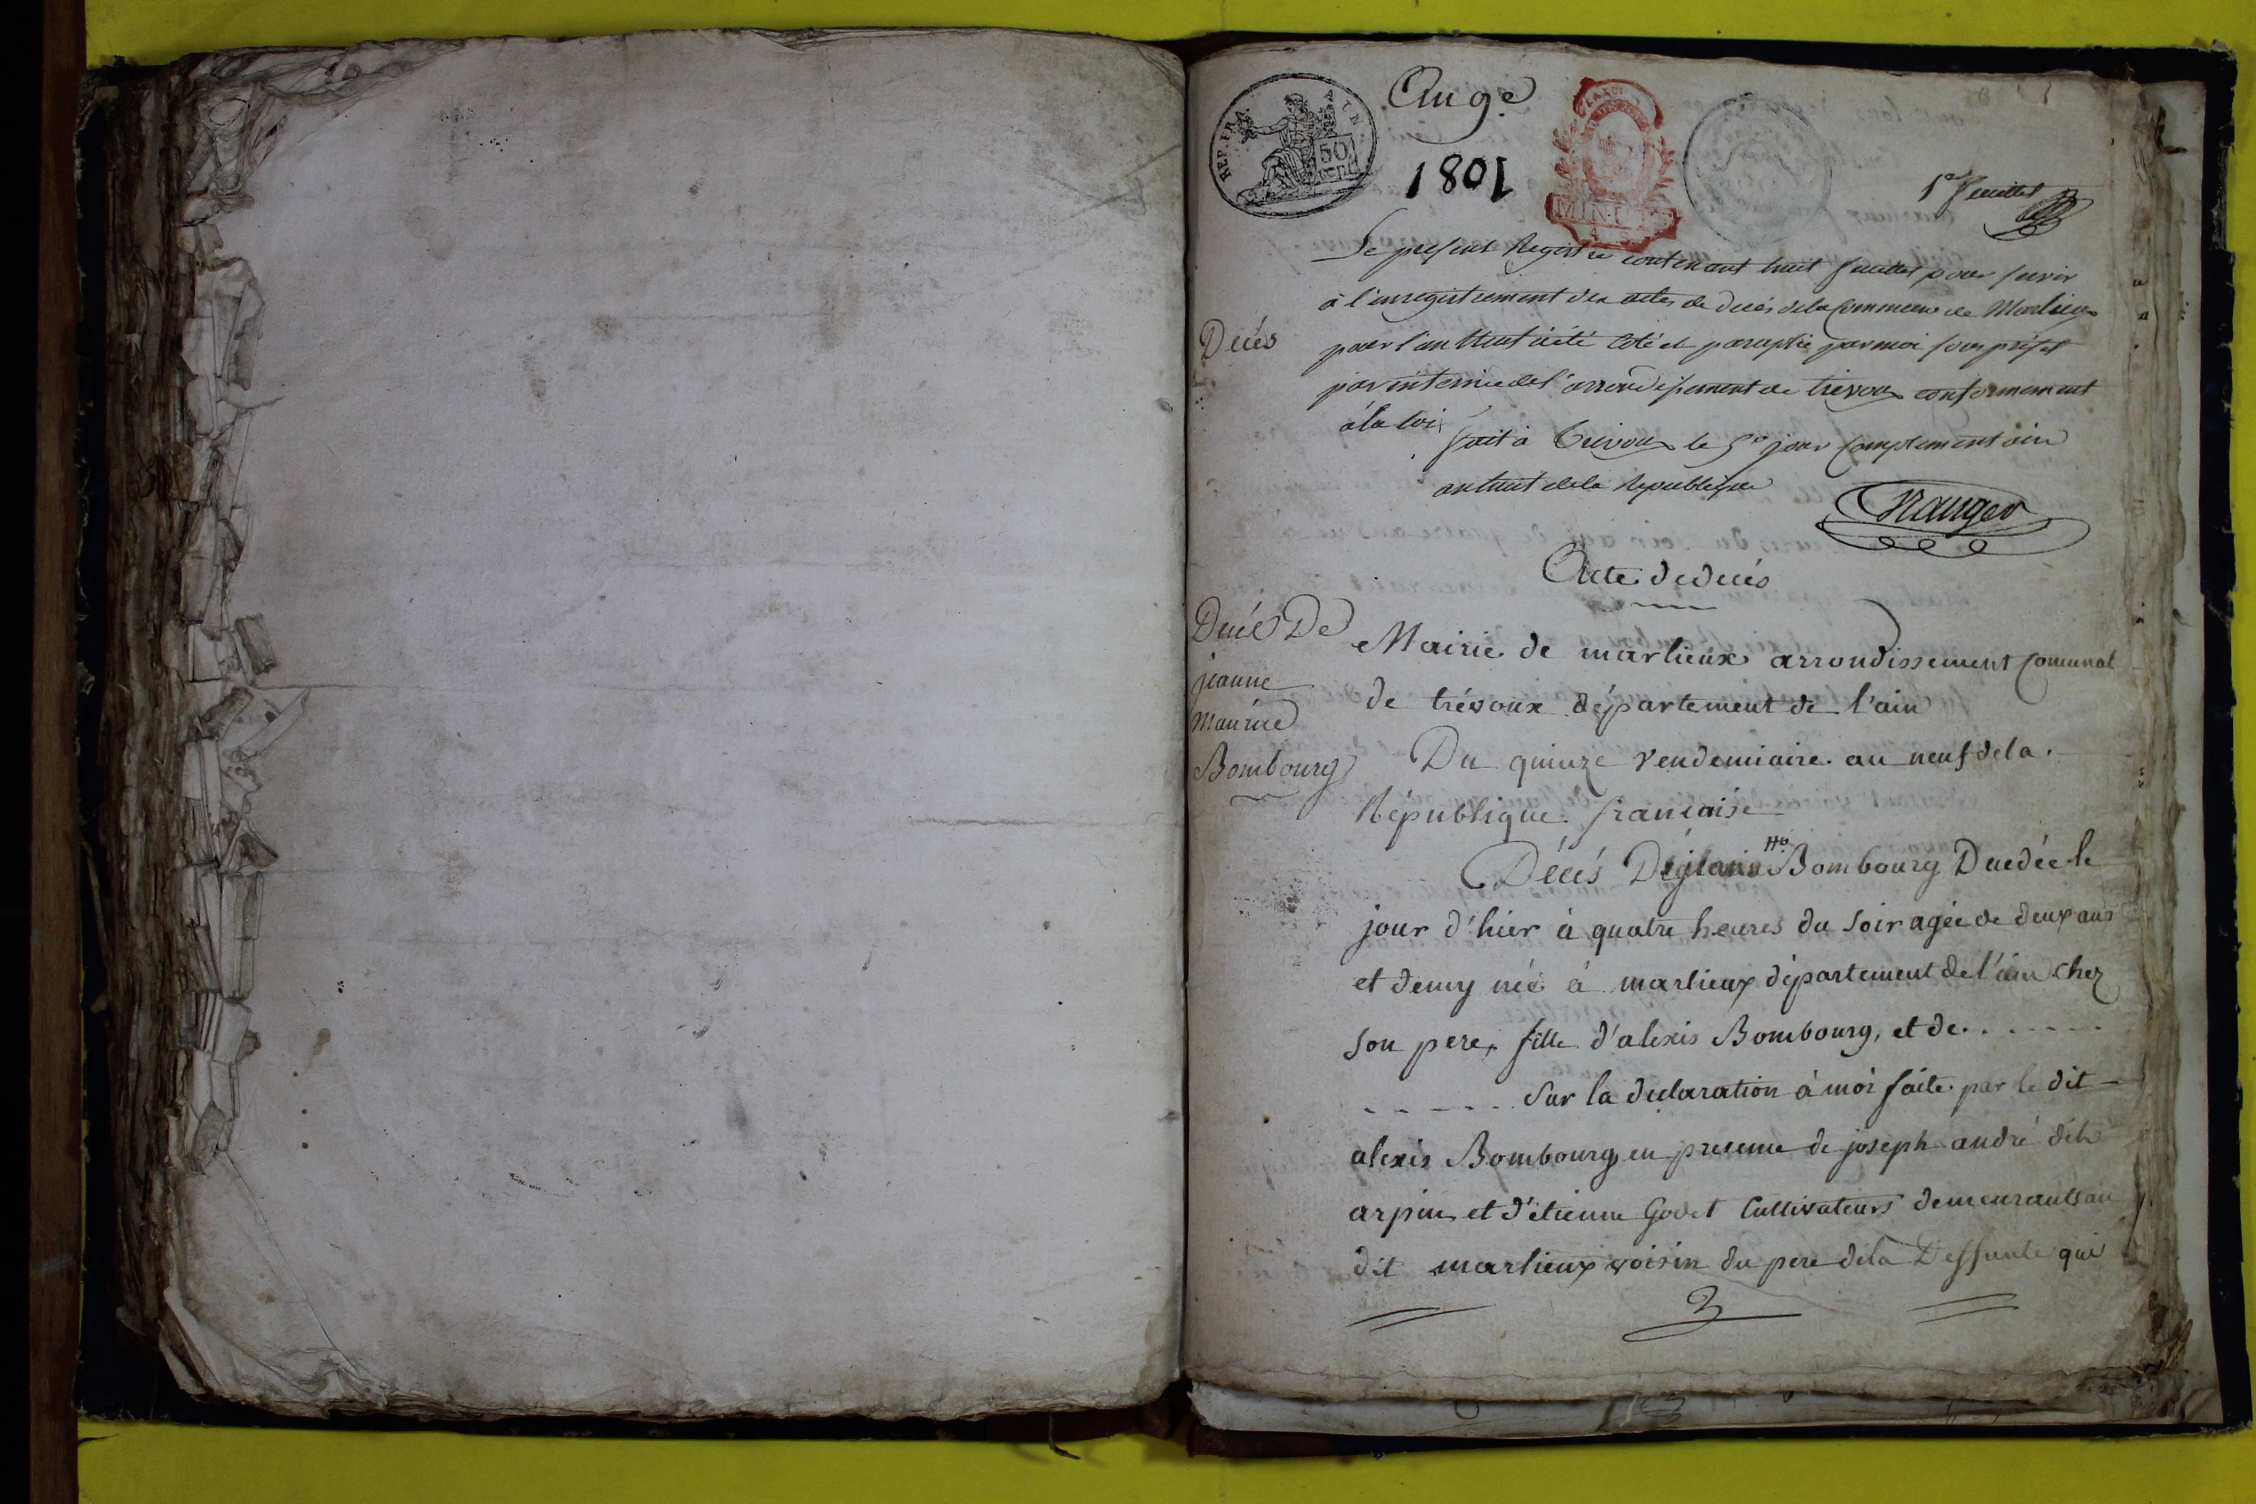 An 9e
REP. FRA.
50
cent
1801
1er feuillet
Le present Registre contenant huit feuillets pour servir
à l'enregistrement des actes de decés de la Commune de Marlieux
Decés
pour l'an neuf a été Coté et paraphé par moi sous prefet
par interim de l'arrondissement de trevoux conformement
à la loi
fait à trevoux le 5e jour complementaire
an huit de la Republique
Acte de decés
Decés De
jeanne
Bombourg
Mairie de marlieux arrondissement communal
de trévoux département de l'ain
Du quinze vendemiaire an neuf de la
République francaise
Décés De Bombourg Decedée le
jour d'hier à quatre heures du soir agée de deux ans
et demy née à marlieux département de l'ain chez
son pere, fille d'alexis Bombourg, et de . . . . . .
. . . . . . sur la declaration à moi faite par le dit
alexis Bombourg en presence de joseph andré dit
arpin et d'étienne Godet Cultivateurs demeurants au
dit marlieux voisin du pere de la Deffunte qui